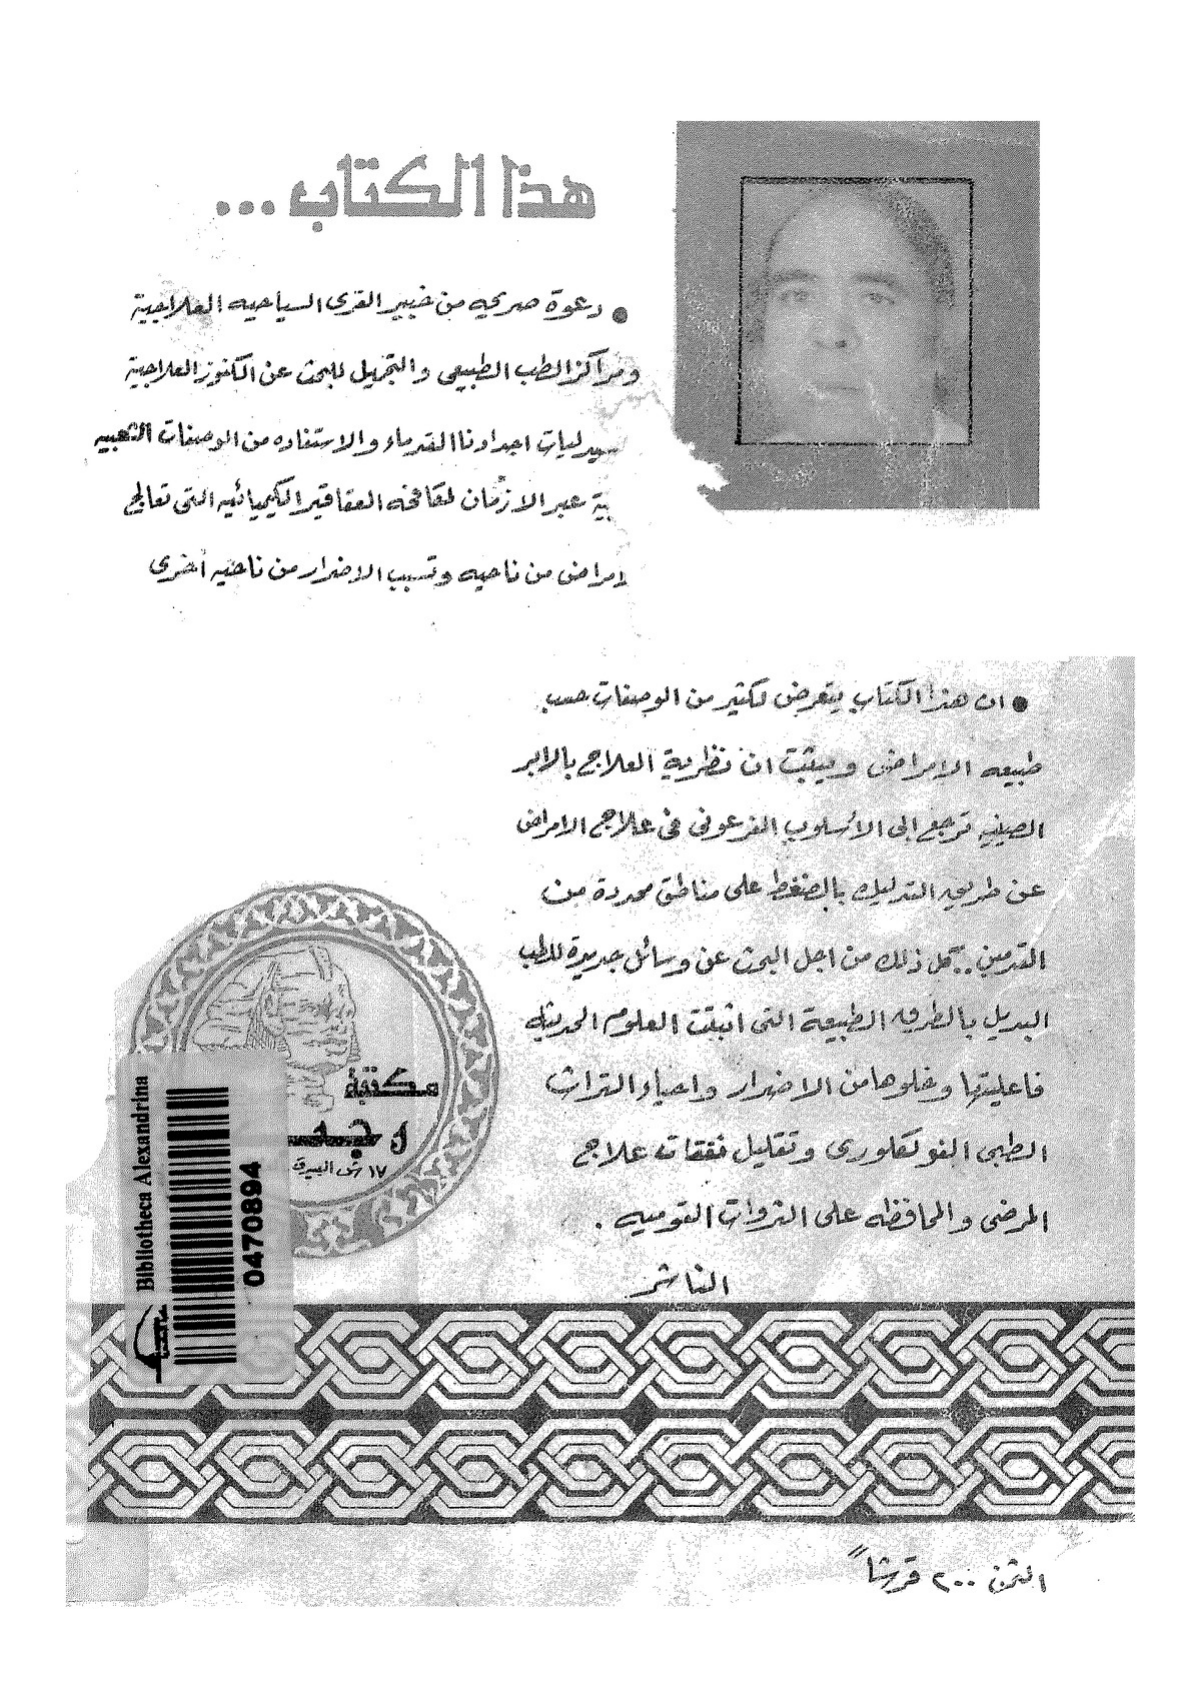 هذا الكتاب ...
● دعوة صريحه من خبير القرى السياحيه العلاجية
ومراكز الطب الطبيعى والتجميل للبحث عن الكنوز العلاجية
اجدادنا القدماء والاستفاده من الوصفات الشعبيه
عبر الازمان لمكافحه العقاقير الكيميائيه التى تعالج
من ناحيه وتسبب الاضرار من ناحيه أخرى
● ان هذا الكتاب يتعرض لكثير من الوصفات حسب
طبيعه الامراض ويثبت ان نظرية العلاج بالابر
الصينيه ترجع الى الأسلوب الفرعونى فى علاج الامراض
عن طريق التدليك بالضغط على مناطق محددة من
القدمين .. كل ذلك من اجل البحث عن وسائل جديدة للطب
البديل بالطرق الطبيعة التى اثبتت العلوم الحديثه
فاعليتها وخلوها من الاضرار واحياء التراث
الطبى الفولكلورى وتقليل نفقات علاج
المرضى والمحافظه على الثروات القوميه .
الناشر
مكتبة
١٧ ش
Bibliotheca Alexandrina
0470894
الثمن ٢٠٠ قرشاً